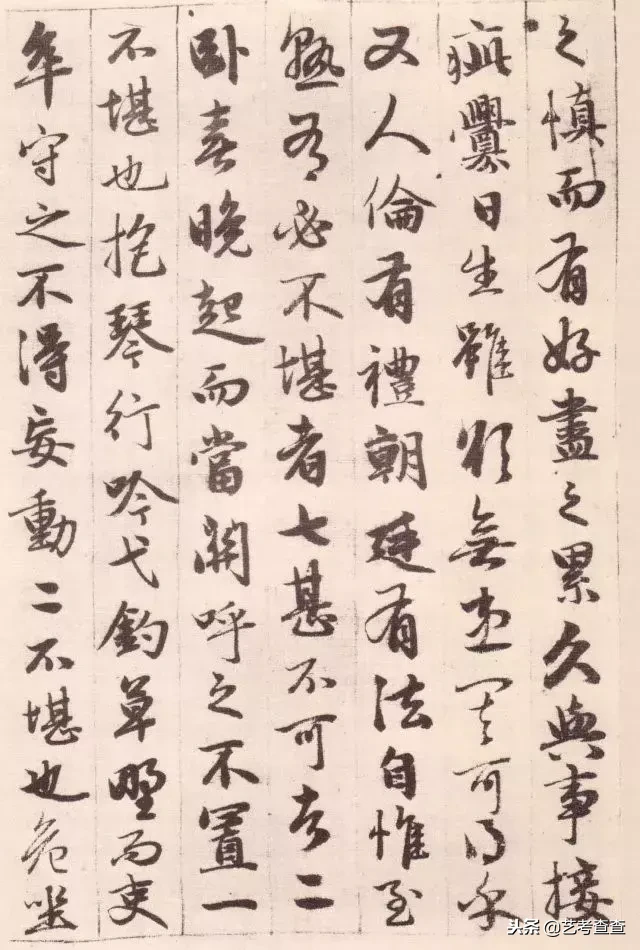 之慎而有好盡之累久與事接
疵釁日生雖欲無患其可得乎
又人倫有禮朝廷有法自惟至
熟有必不堪者七甚不可者二
卧喜晚起而當關呼之不置一
不堪也抱琴行吟弋釣草野而吏
卒守之不得妄動二不堪也危坐
头条 @艺考查查